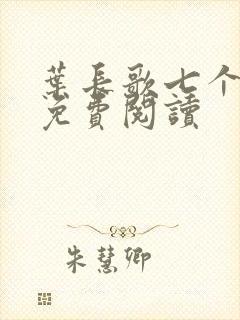 葉長歌七个
免費閱讀
朱慧卿